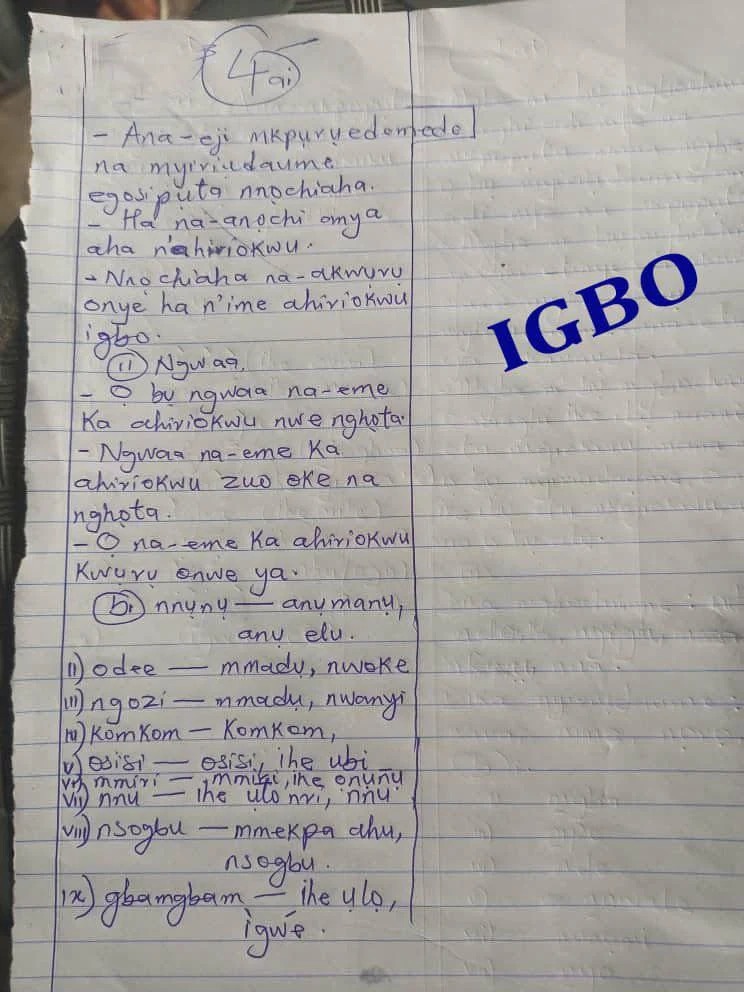 4ai
- Ana-eji mkpụrụedemede
na myiriụdaume
egosipụta nnọchiaha.
- Ha na-anọchi ọnụya
aha n'ahịrịokwu.
- Nnọchiaha na-akwụrụ
onye ha n'ime ahịrịokwu
igbo.
(ii) Ngwaa.
- Ọ bụ ngwaa na-eme
ka ahịrịokwu nwe nghọta.
- Ngwaa na-eme ka
ahịrịokwu zuo oke na
nghọta.
- Ọ na-eme ka ahịrịokwu
kwụrụ onwe ya.
(bi) nnụnụ — anụmanụ,
anụ elu.
ii) odee — mmadụ, nwoke
iii) ngozi — mmadụ, nwanyi
iv) komkom — komkom,
v) osisi — osisi, ihe ubi
vi) mmiri — mmiri, ihe ọnụnụ
vii) nnu — ihe ụlo nri, nnụ
viii) nsogbu — mmekpa ahu,
nsogbu.
ix) gbamgbam — ihe ụlọ,
ìgwé.
IGBO